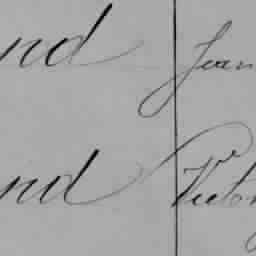 nd Jean
nd Victor